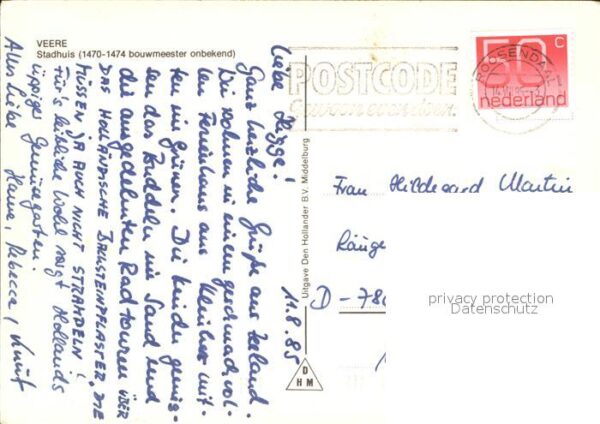 VEERE
Stadhuis (1470-1474 bouwmeester onbekend)
11.8.85
Liebe Hegge!
Ganz herzliche Grüße aus Zeeland.
Wir wohnen in einem geschmackvol-
len Ferienhaus aus Klinker mit-
ten im Grünen. Die Kinder genies-
sen das Buddeln im Sand und
die ausgedehnten Radtouren ÜBER
DAS HOLLÄNDISCHE BACKSTEINPFLASTER, DIE
MÜSSEN JA AUCH NICHT STRAMPELN!
Für's leibliche Wohl sorgt Hollands
üppiger Gemüsegarten.
Alles Liebe Hanne, Rebecca, Kurt
Uitgave Den Hollander B.V. Middelburg
DHM
POSTCODE
Gewoon even doen.
ROOSENDAAL
50 c
nederland
Frau Hildegard Martin
D-78
privacy protection
Datenschutz